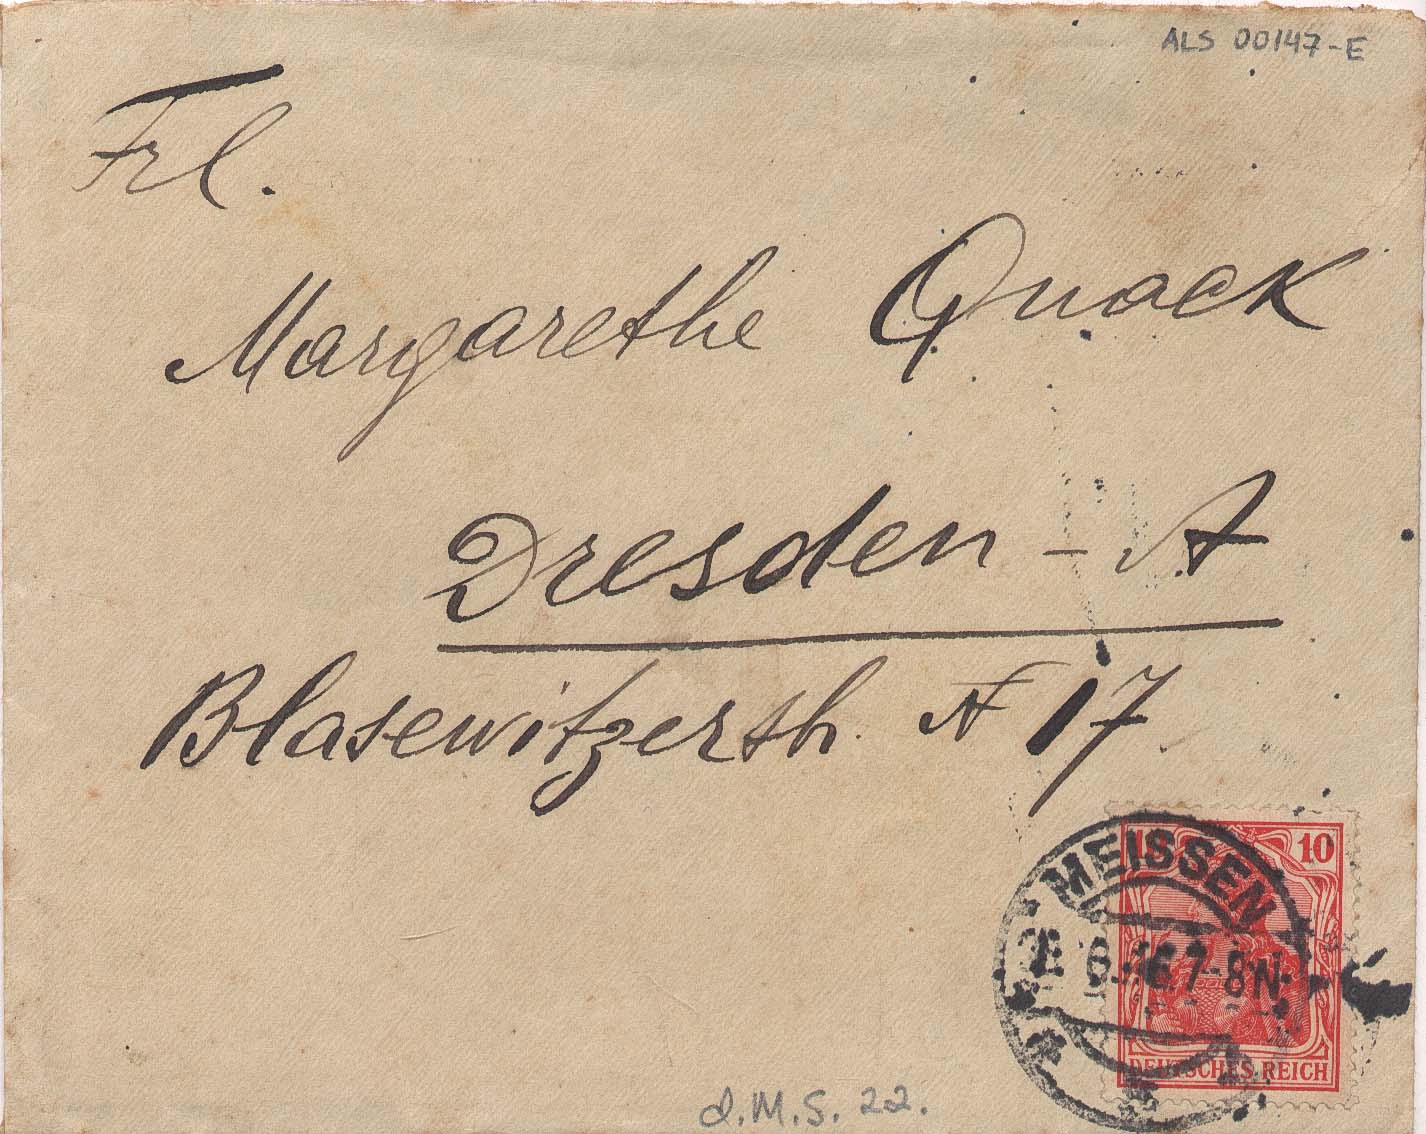 ALS 00147-E
Frl.
Margarethe Quack
Dresden - A
Blasewitzerstr. N 17
MEISSEN
6. 16. 7-8N.
10
DEUTSCHES REICH
d.M.S. 22.